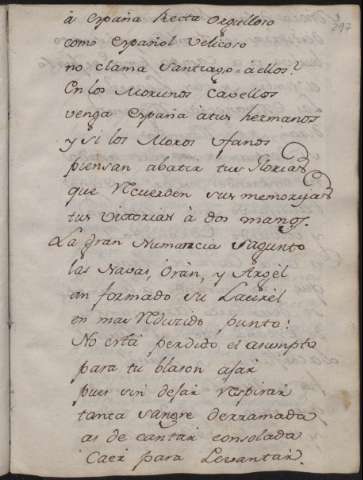 297
à España Recta Orgulloso
como Español Velicoso
no clama Santiago à ellos?
En los Morunos Cavellos
venga España àtus hermanos
y si los Moros Vfanos
piensan abatir tus Glorias
que Rcuerden sus memorias
tus Victorias à dos manos.
La Gran Numancia Sagunto
las Navas, Orán, y Argel
an formado su Laurèl
en mas Rduzido punto:
No está perdido el asumpto
para tu blason ajar
pues sin dejar respirar
tanta Sangre derramada
as de cantar consolada
Caer para Levantar.